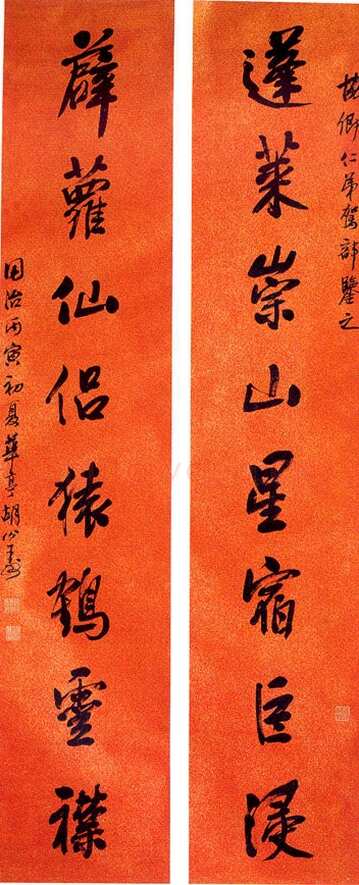 卿仁弟駕部鑒之
蓬萊崇山星宿巨浸
薜蘿仙侶猿鶴靈襟
同治丙寅初夏華亭胡公壽